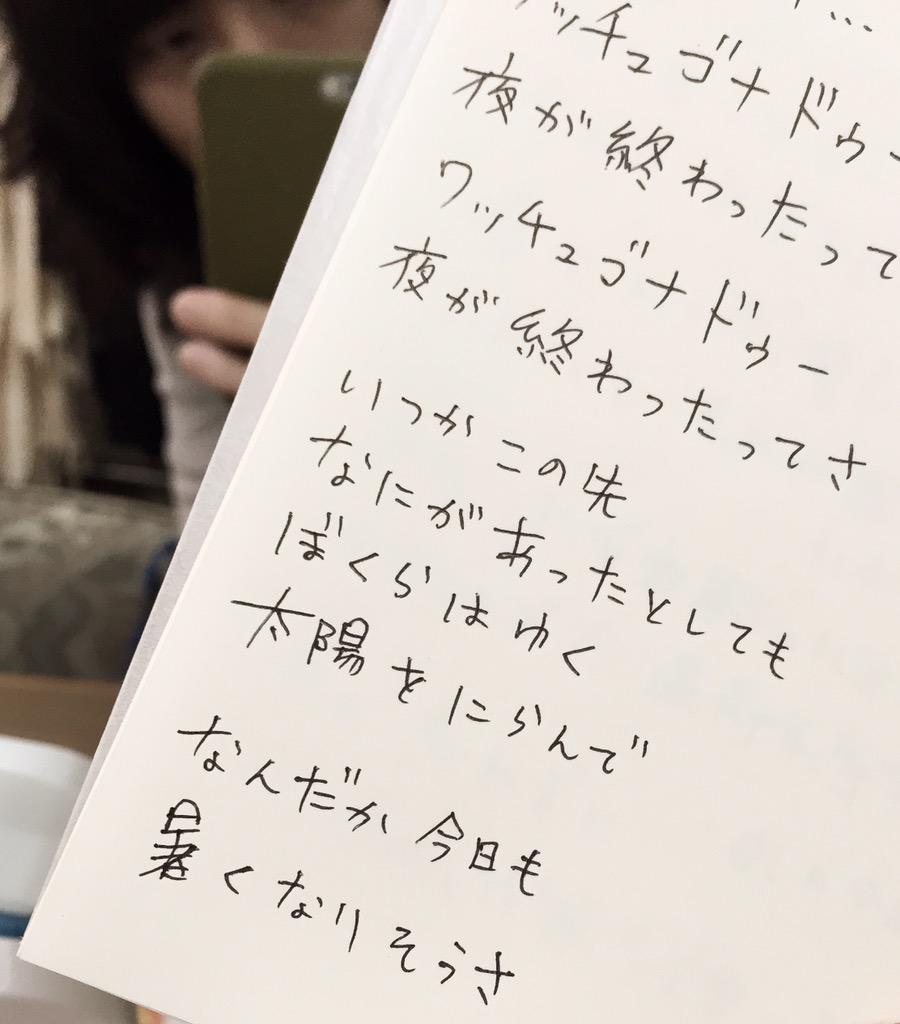 ッチュゴナドゥー
夜が終わったって
ワッチュゴナドゥー
夜が終わったってさ
いつかこの先
なにがあったとしても
ぼくらはゆく
太陽をにらんで
なんだか今日も
暑くなりそうさ